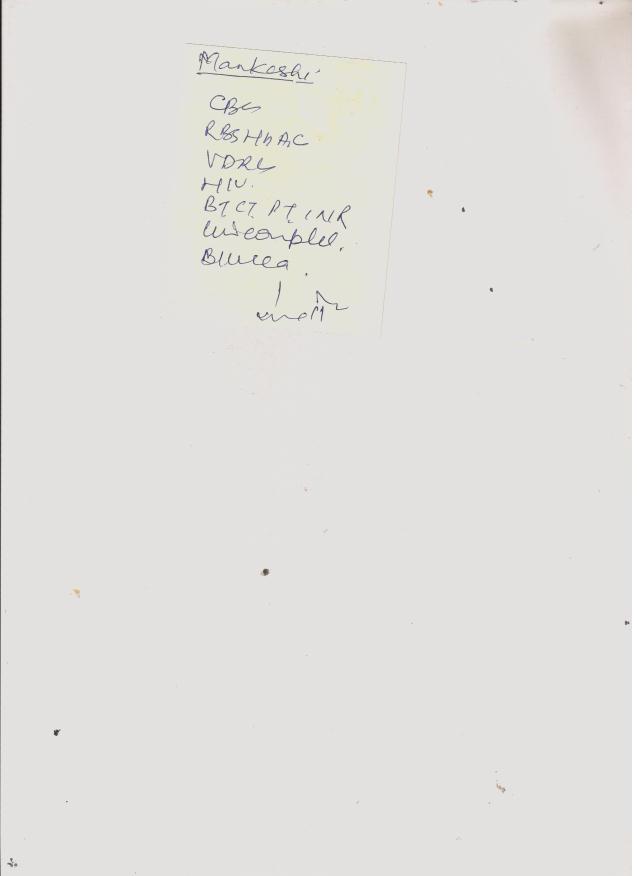 Mankoshi
CBC
RBS Hb A1C
VDRL
HIV.
BT, CT, PT, INR
Urine complet.
B/urea.